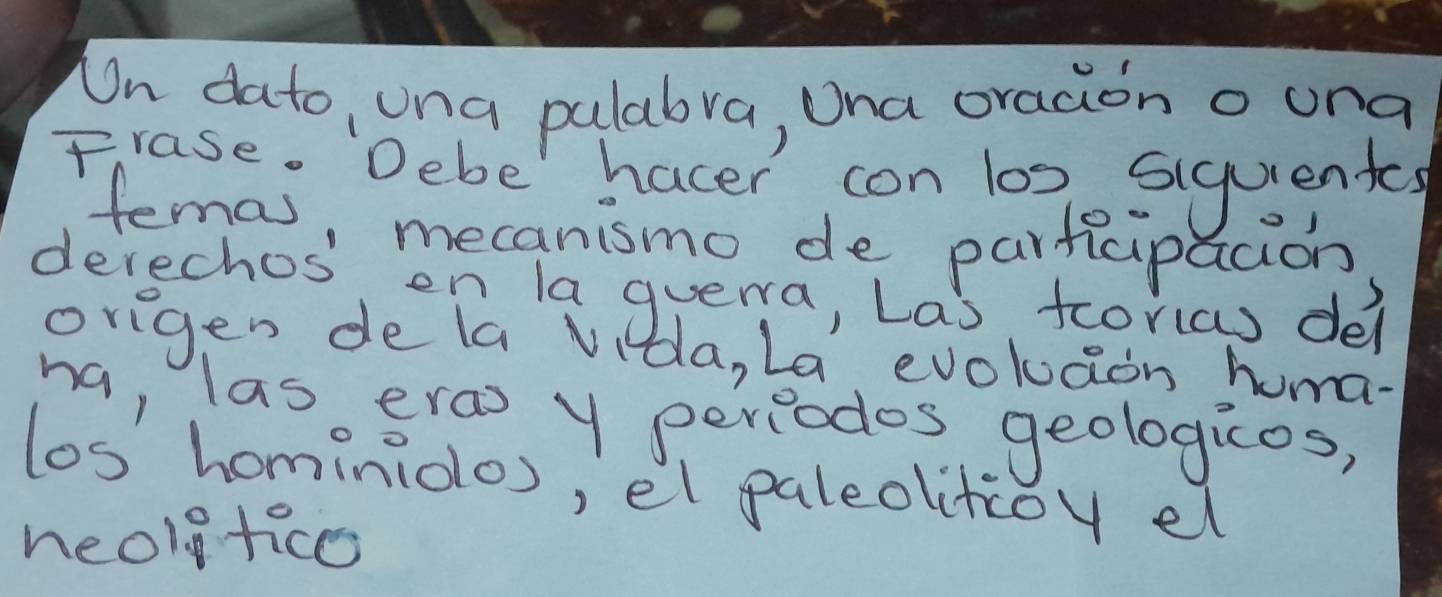 Un dato, una palabra, Una oración o una
Frase. Debe hacer con los siguientes
temas, mecanismo de participación,
derechos en la guerra, Las teorias del
origen de la vida, La evolución huma-
na, las eras y periodos geologicos,
los hominidos, el paleolitico y el
neolitico